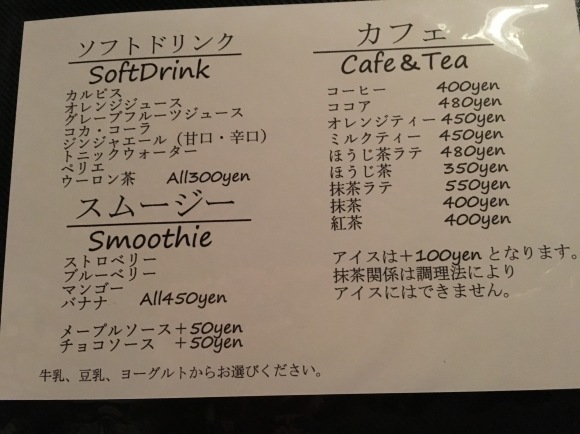 ソフトドリンク
SoftDrink
カルピス
オレンジジュース
グレープフルーツジュース
コカ・コーラ
ジンジャエール（甘口・辛口）
トニックウォーター
ペリエ
ウーロン茶 All300yen
スムージー
Smoothie
ストロベリー
ブルーベリー
マンゴー
バナナ All450yen
メープルソース＋50yen
チョコソース ＋50yen
牛乳、豆乳、ヨーグルトからお選びください。
カフェ
Cafe&Tea
コーヒー 400yen
ココア 480yen
オレンジティー 450yen
ミルクティー 450yen
ほうじ茶ラテ 480yen
ほうじ茶 350yen
抹茶ラテ 550yen
抹茶 400yen
紅茶 400yen
アイスは＋100yenとなります。
抹茶関係は調理法により
アイスにはできません。